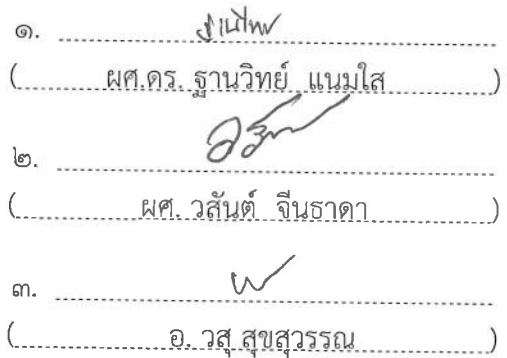 ๑.
(ผศ.ดร. ฐานวิทย์ แนมใส)
๒.
(ผศ. วสันต์ จีนธาดา)
๓.
(อ. วสุ สุขสุวรรณ)